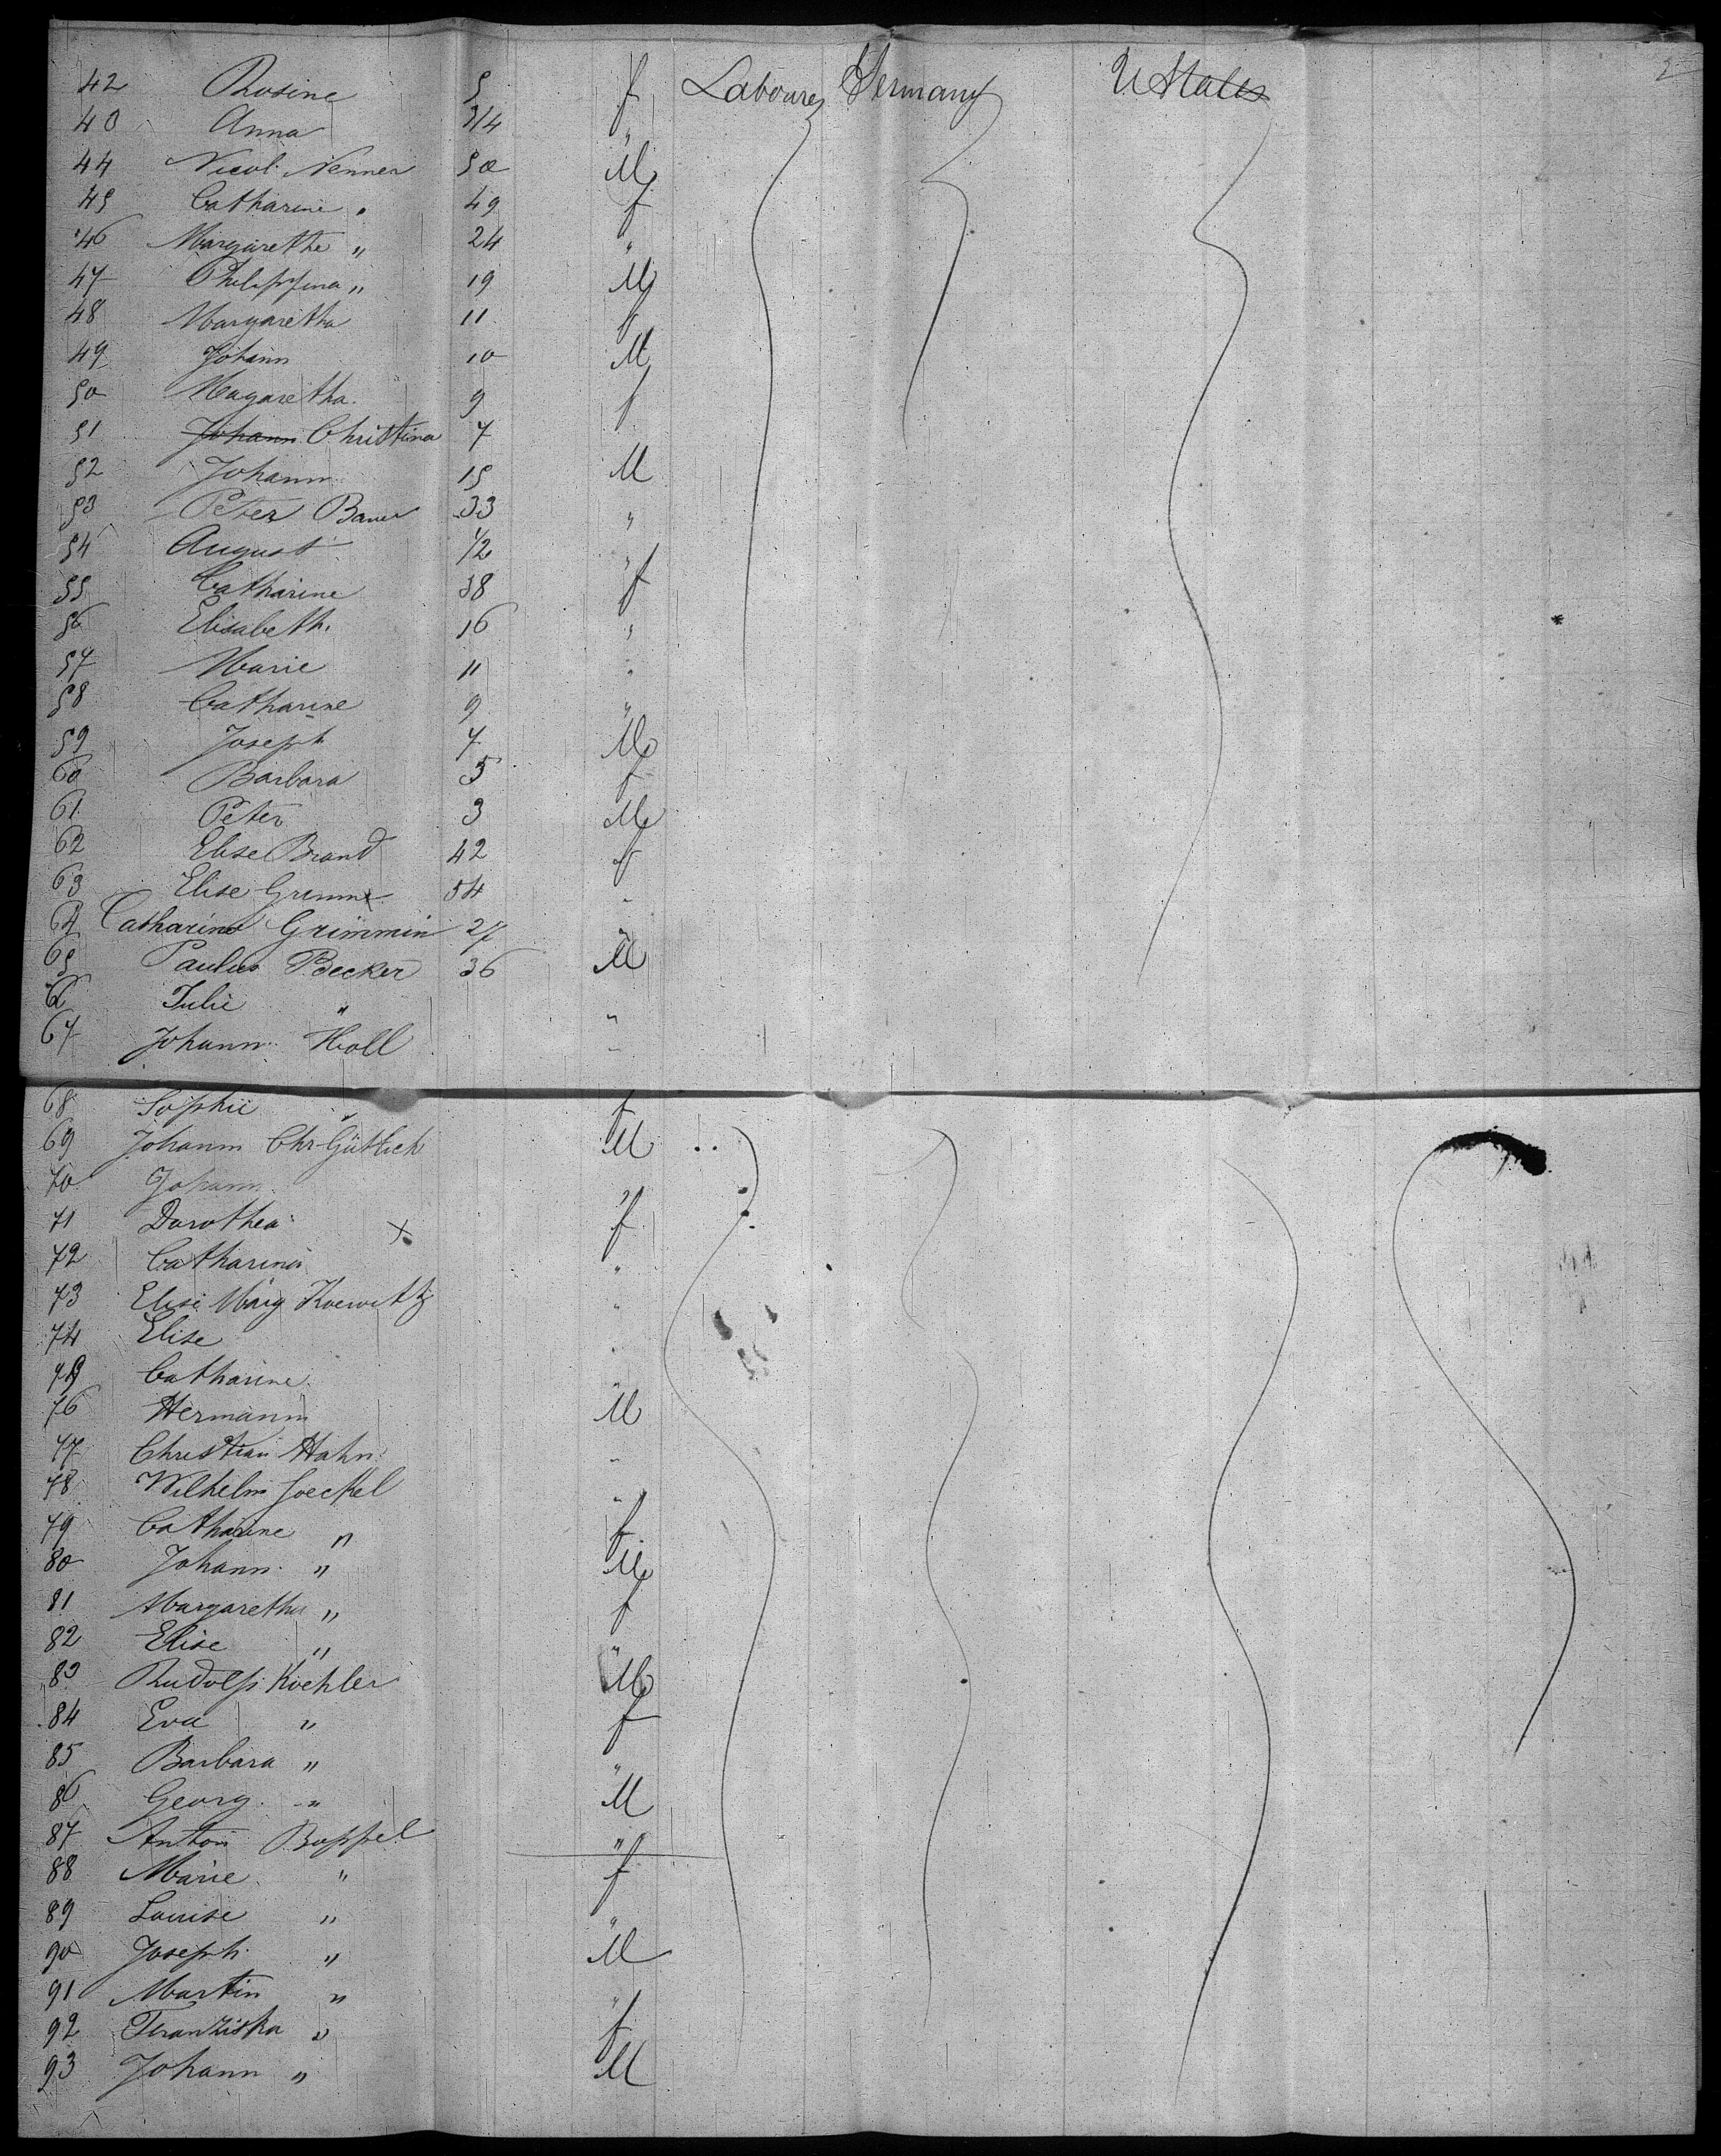 2
42 Rosine 5 f Laboures Germany U States
40 Anna 3/4 "
44 Nicol. Nenner 50 M
45 Catharine " 49 f
46 Margarethe " 24 "
47 Philippina " 19 M
48 Margaretha 11 f
49 Johann 10 M
50 Magaretha. 9 f
51 Johann Christina 7
52 Johann 15 M
53 Peter Bauer 33 "
54 August 1/2 "
55 Catharine 38 f
56 Elisabeth. 16 "
57 Marie 11 "
58 Catharine 9 "
59 Joseph 7 M
60 Barbara 5 f
61 Peter 3 M
62 Elise Brand 42 f
63 Elise Grimm 54 "
64 Catharine Grimmin 27 "
65 Paulus Becker 36 M
66 Julie " "
67 Johann Holl "
68 Sophie " f
69 Johann Chr. Gütlich M
70 Johann "
71 Dorothea x f
72 Catharina "
73 Elise Marg "
74 Elise "
75 Catharine "
76 Hermann M
77 Christian Hahn "
78 Wilhelm Joeckel "
79 Catharine " f
80 Johann " M
81 Margaretha " f
82 Elise " "
83 Rudolph Koehler M
84 Eva " f
85 Barbara " "
86 Georg " M
87 Anton Boppel "
88 Marie " f
89 Louise " "
90 Joseph " M
91 Martin " "
92 Franziska " f
93 Johann " M